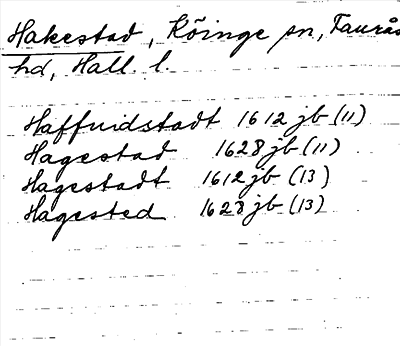 Hakestad, Köinge sn, Faurås
hd, Hall. l.
Haffuidstadt 1612 jb (11)
Hagestad 1628 jb (11)
Hagestadt 1612 jb (13)
Hagested 1628 jb (13)